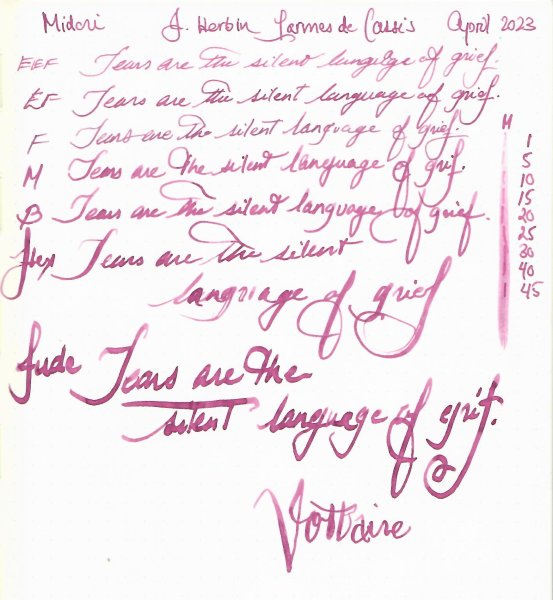 Midori J. Herbin Larmes de Cassis April 2023
EEF Tears are the silent language of grief.
EF Tears are the silent language of grief.
F Tears are the silent language of grief.
M Tears are the silent language of grif.
B Tears are the silent language of grief.
flex Tears are the silent
language of grief
fude Tears are the
silent language of grif.
Voltaire
M
1
5
10
15
20
25
30
40
45